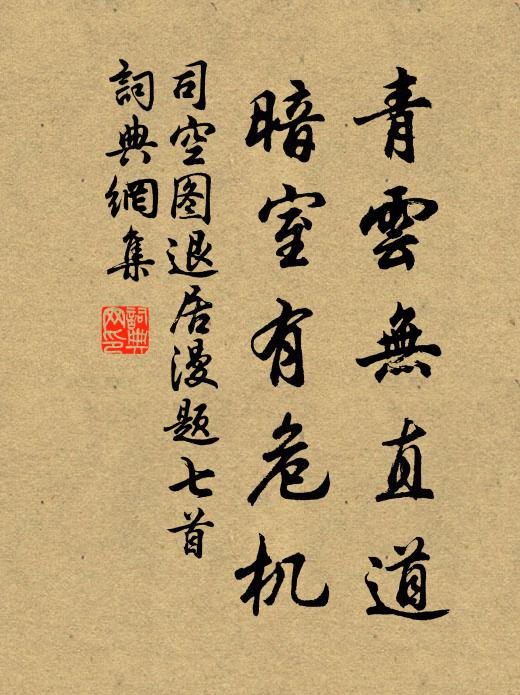 青雲無直道
暗室有危机
司空图退居漫题七首
詞典網集
詞典网印